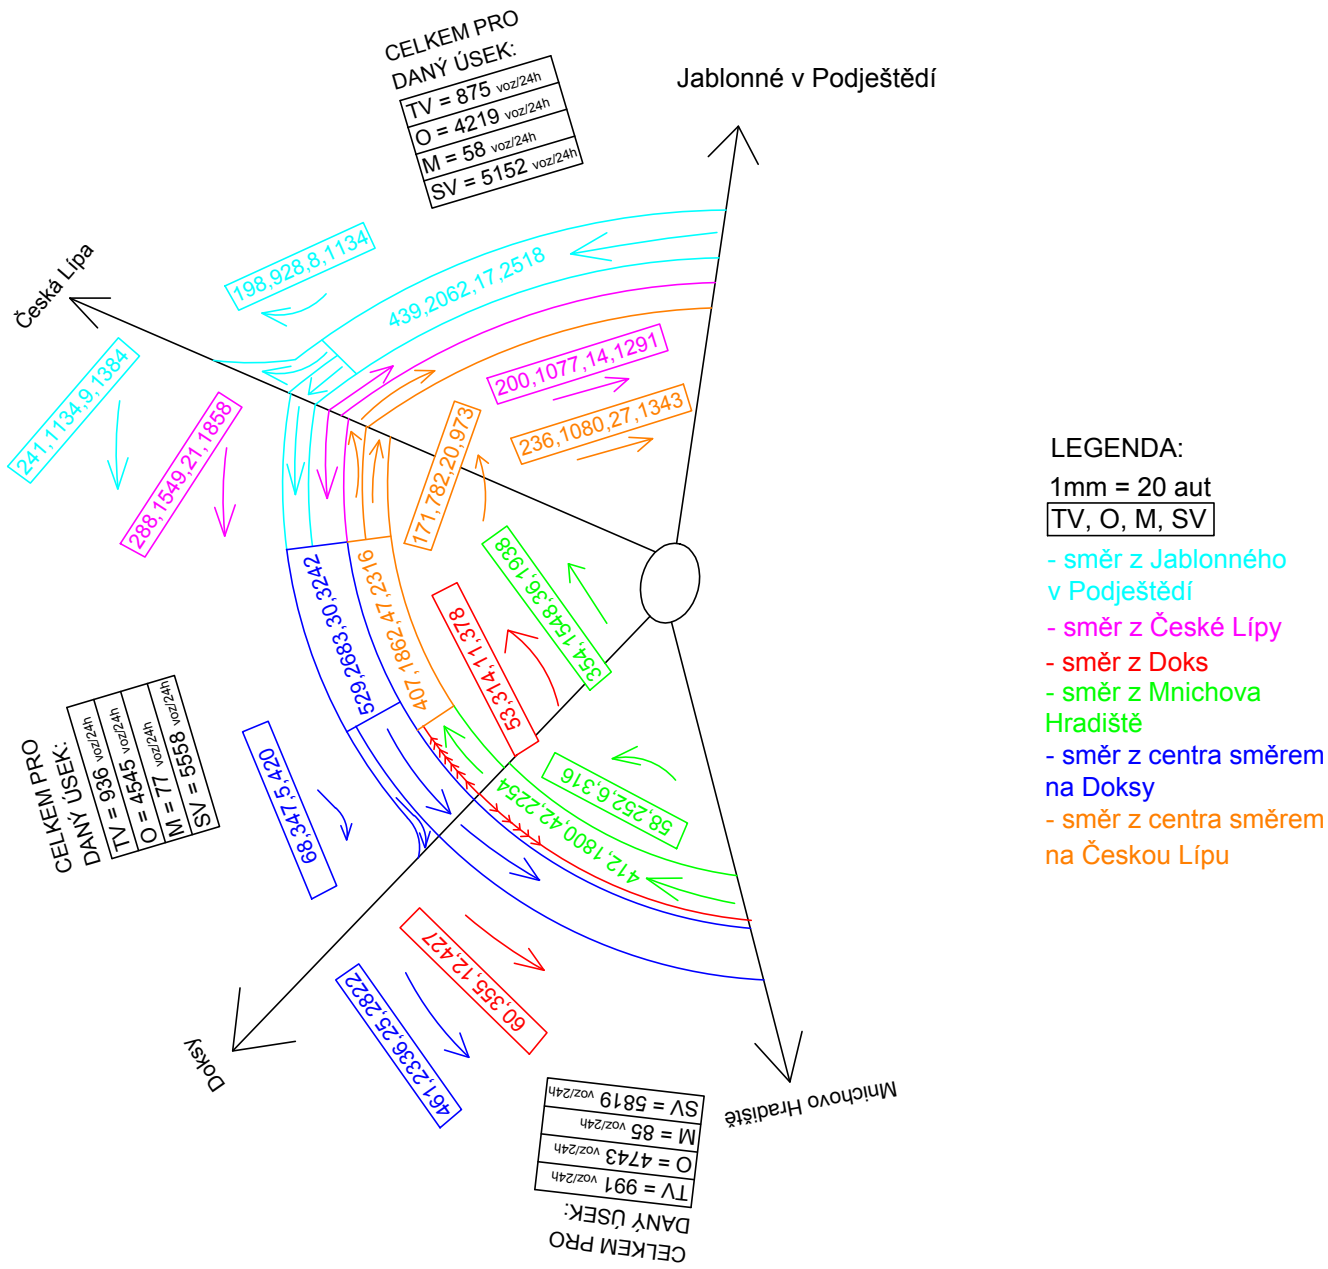 CELKEM PRO
DANÝ ÚSEK:
TV = 875 voz/24h
O = 4219 voz/24h
M = 58 voz/24h
SV = 5152 voz/24h
Jablonné v Podještědí
Česká Lípa
198,928,8,1134
439,2062,17,2518
241,1134,9,1384
288,1549,21,1858
200,1077,14,1291
236,1080,27,1343
171,782,20,973
529,2683,30,3242
407,1862,47,2316
354,1548,36,1938
53,314,11,378
58,252,6,316
412,1800,42,2254
68,347,5,420
60,355,12,427
461,2336,25,2822
CELKEM PRO
DANÝ ÚSEK:
TV = 936 voz/24h
O = 4545 voz/24h
M = 77 voz/24h
SV = 5558 voz/24h
Doksy
Mnichovo Hradiště
CELKEM PRO
DANÝ ÚSEK:
TV = 991 voz/24h
O = 4743 voz/24h
M = 85 voz/24h
SV = 5819 voz/24h
LEGENDA:
1mm = 20 aut
TV, O, M, SV
- směr z Jablonného
v Podještědí
- směr z České Lípy
- směr z Doks
- směr z Mnichova
Hradiště
- směr z centra směrem
na Doksy
- směr z centra směrem
na Českou Lípu